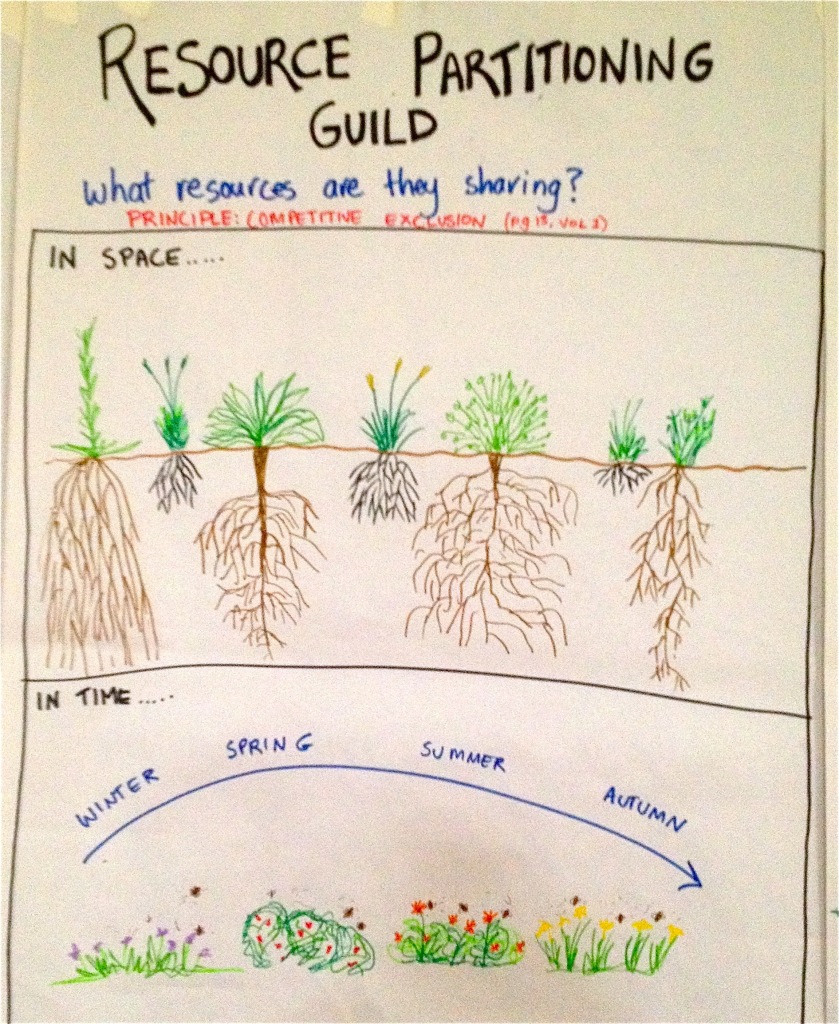 RESOURCE PARTITIONING
GUILD
What resources are they sharing?
PRINCIPLE: COMPETITIVE EXCLUSION (pg 13, VOL 1)
IN SPACE.....
IN TIME.....
WINTER
SPRING
SUMMER
AUTUMN